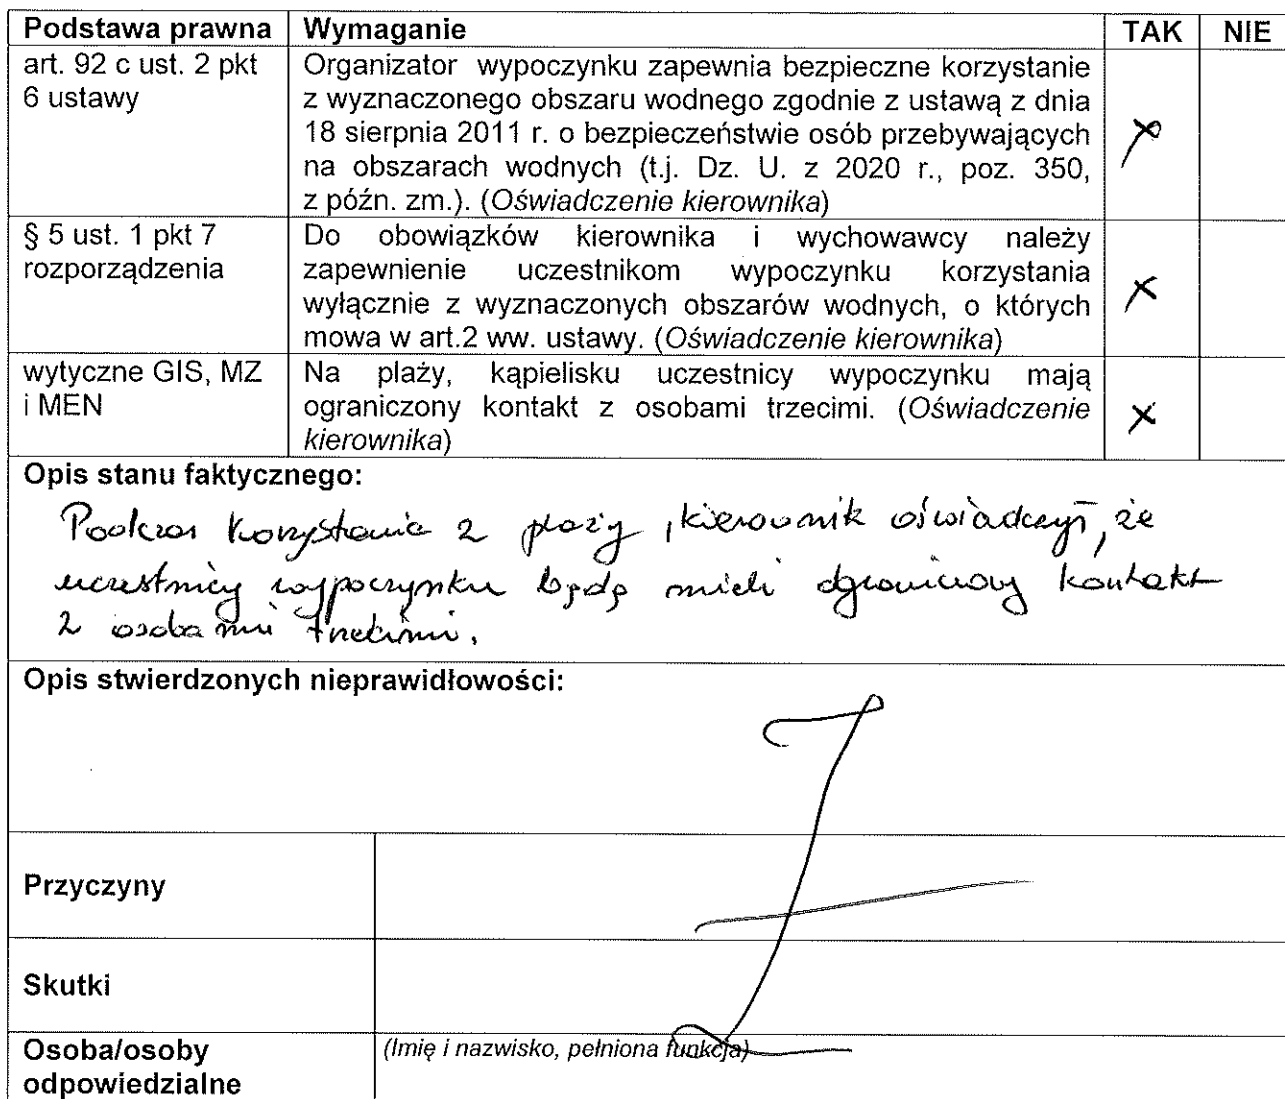 Podstawa prawna Wymaganie TAK NIE
art. 92 c ust. 2 pkt
6 ustawy
Organizator wypoczynku zapewnia bezpieczne korzystanie
z wyznaczonego obszaru wodnego zgodnie z ustawą z dnia
18 sierpnia 2011 r. o bezpieczeństwie osób przebywających
na obszarach wodnych (t.j. Dz. U. z 2020 r., poz. 350,
z późn. zm.). (Oświadczenie kierownika)
X
§ 5 ust. 1 pkt 7
rozporządzenia
Do obowiązków kierownika i wychowawcy należy
zapewnienie uczestnikom wypoczynku korzystania
wyłącznie z wyznaczonych obszarów wodnych, o których
mowa w art.2 ww. ustawy. (Oświadczenie kierownika)
X
wytyczne GIS, MZ
i MEN
Na plaży, kąpielisku uczestnicy wypoczynku mają
ograniczony kontakt z osobami trzecimi. (Oświadczenie
kierownika)
X
Opis stanu faktycznego:
Podczas korzystania z plaży, kierownik oświadczył, że
uczestnicy wypoczynku będą mieli ograniczony kontakt
z osobami trzecimi.
Opis stwierdzonych nieprawidłowości:
Przyczyny
Skutki
Osoba/osoby
odpowiedzialne
(Imię i nazwisko, pełniona funkcja)